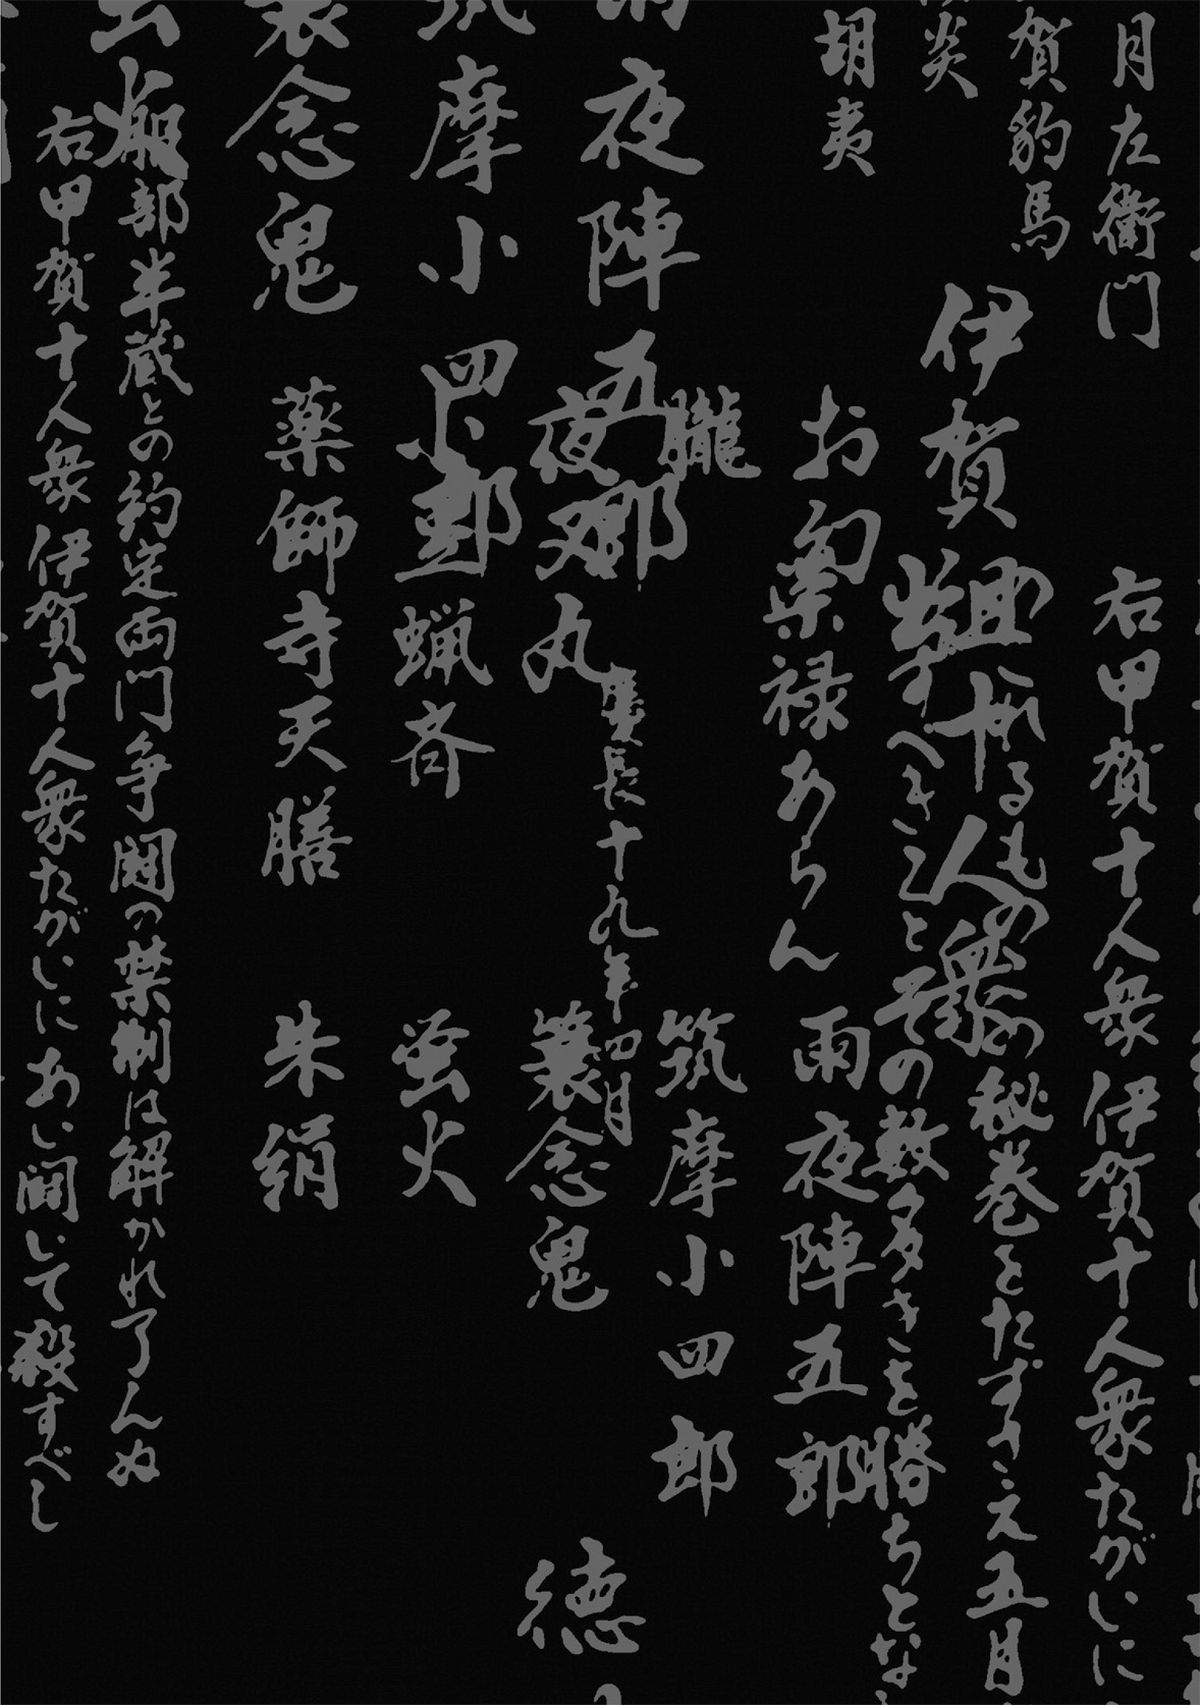 月左衛門
右甲賀十人衆伊賀十人衆たがいに
賀豹馬
炎
伊賀
十人衆
るものこの秘巻をたずさえ五月
胡夷
すべきことその数多きを勝ちとな
お幻
禄あらん
雨夜陣五郎
朧
筑摩小四郎
夜陣五郎
慶長十九年四月
夜叉丸
簑念鬼
徳
摩小四郎
小豆蝋斉
蛍火
念鬼
薬師寺天膳
朱絹
服部半蔵との約定両門争闘の禁制は解かれ了んぬ
右甲賀十人衆伊賀十人衆たがいにあい闘いて殺すべし